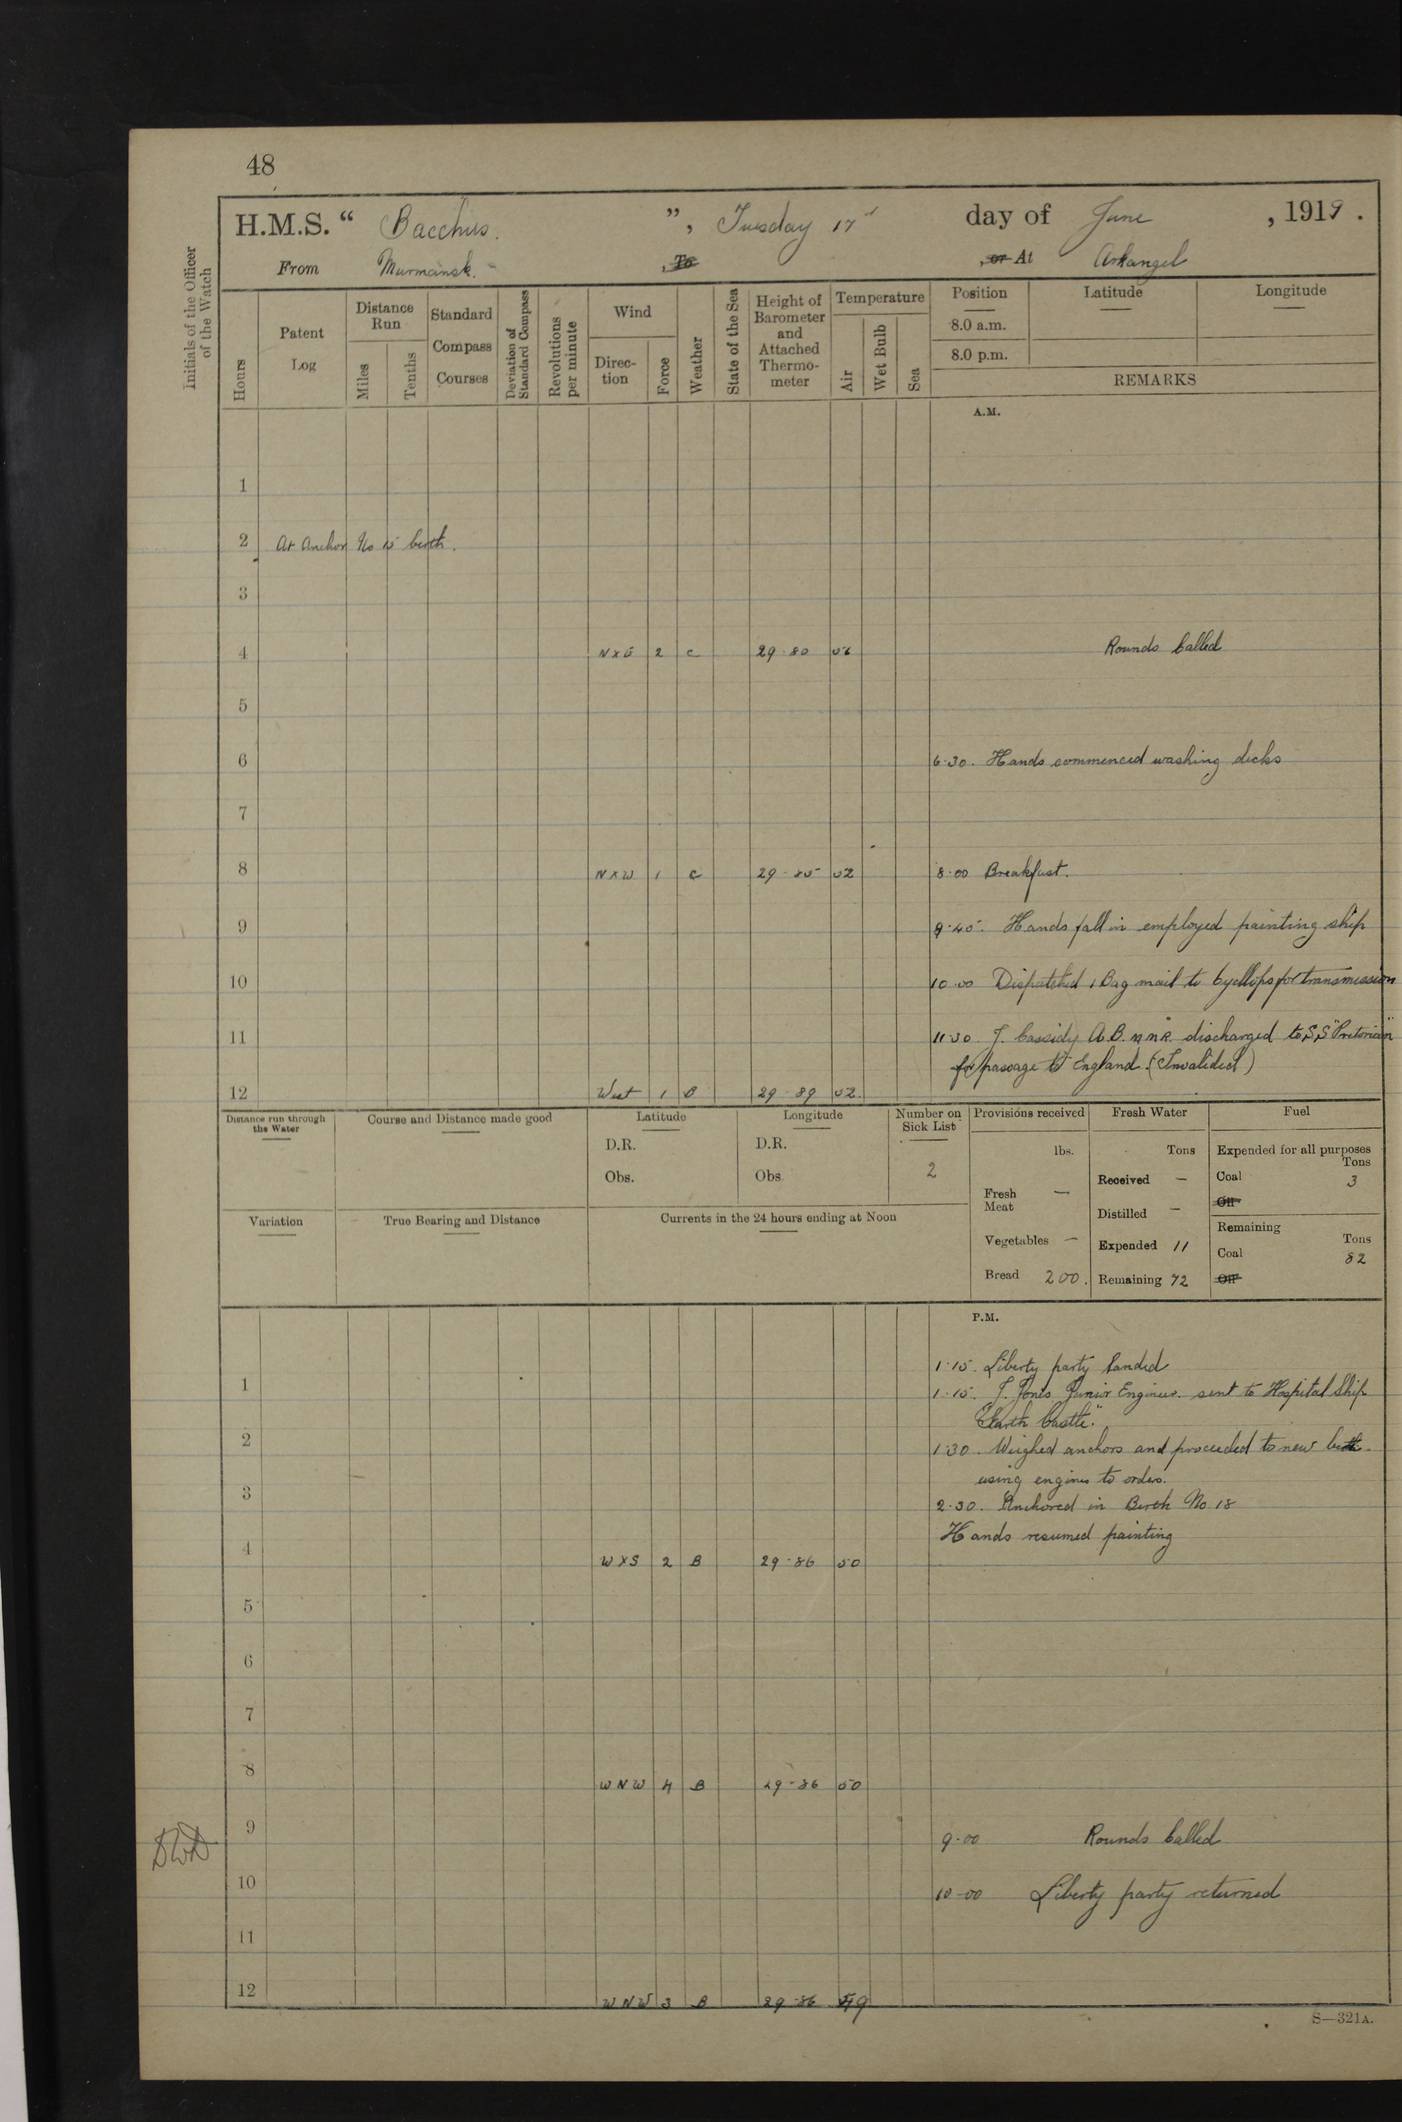 48
H.M.S. “ Bacchus. ”, Tuesday 17th day of June , 1919 .
From Murmansk. , To , or At Arkangel
Initials of the Officer of the Watch
Hours
Patent Log
Distance Run
Miles
Tenths
Standard Compass Courses
Deviation of Standard Compass
Revolutions per minute
Wind
Direction
Force
Weather
State of the Sea
Height of Barometer and Attached Thermometer
Temperature
Air
Wet Bulb
Sea
Position
Latitude
Longitude
8.0 a.m.
8.0 p.m.
REMARKS
A.M.
1
2 At Anchor No 5 berth.
3
4 NXE 2 C 29-80 Rounds Called
5
6 6-30. Hands commenced washing decks
7
8 NXW 1 C 29-85 52 8-00 Breakfast.
9 9-45. Hands fall in employed painting ship
10 10-00 Dispatched 1 Bag mail to Cyclops for transmission
11 11-30 J. Cassidy A.B. M.M.R. discharged to S.S "Pretorian"
for passage to England. (Invalided)
12 West 1 B 29-89 52
Distance run through the Water
Course and Distance made good
Latitude
D.R.
Obs.
Longitude
D.R.
Obs.
Number on Sick List
2
Provisions received
lbs.
Fresh Meat —
Vegetables —
Bread 200.
Fresh Water
Tons
Received —
Distilled —
Expended 11
Remaining 72
Fuel
Expended for all purposes
Tons
Coal 3
Oil
Remaining
Tons
Coal 82
Oil
Variation
True Bearing and Distance
Currents in the 24 hours ending at Noon
P.M.
1-15. Liberty party landed
1 1-15. J. Jones Junior Engineer. sent to Hospital Ship
"Garth Castle."
2 1-30. Weighed anchors and proceeded to new berth.
using engines to orders.
3 2-30. Anchored in Berth No 18
Hands resumed painting
4 WXS 2 B 29-86 50
5
6
7
8 WNW 4 B 29-86 50
9 9-00 Rounds Called
DWD
10 10-00 Liberty party returned
11
12 WNW 3 B 29-86 49
S—321A.